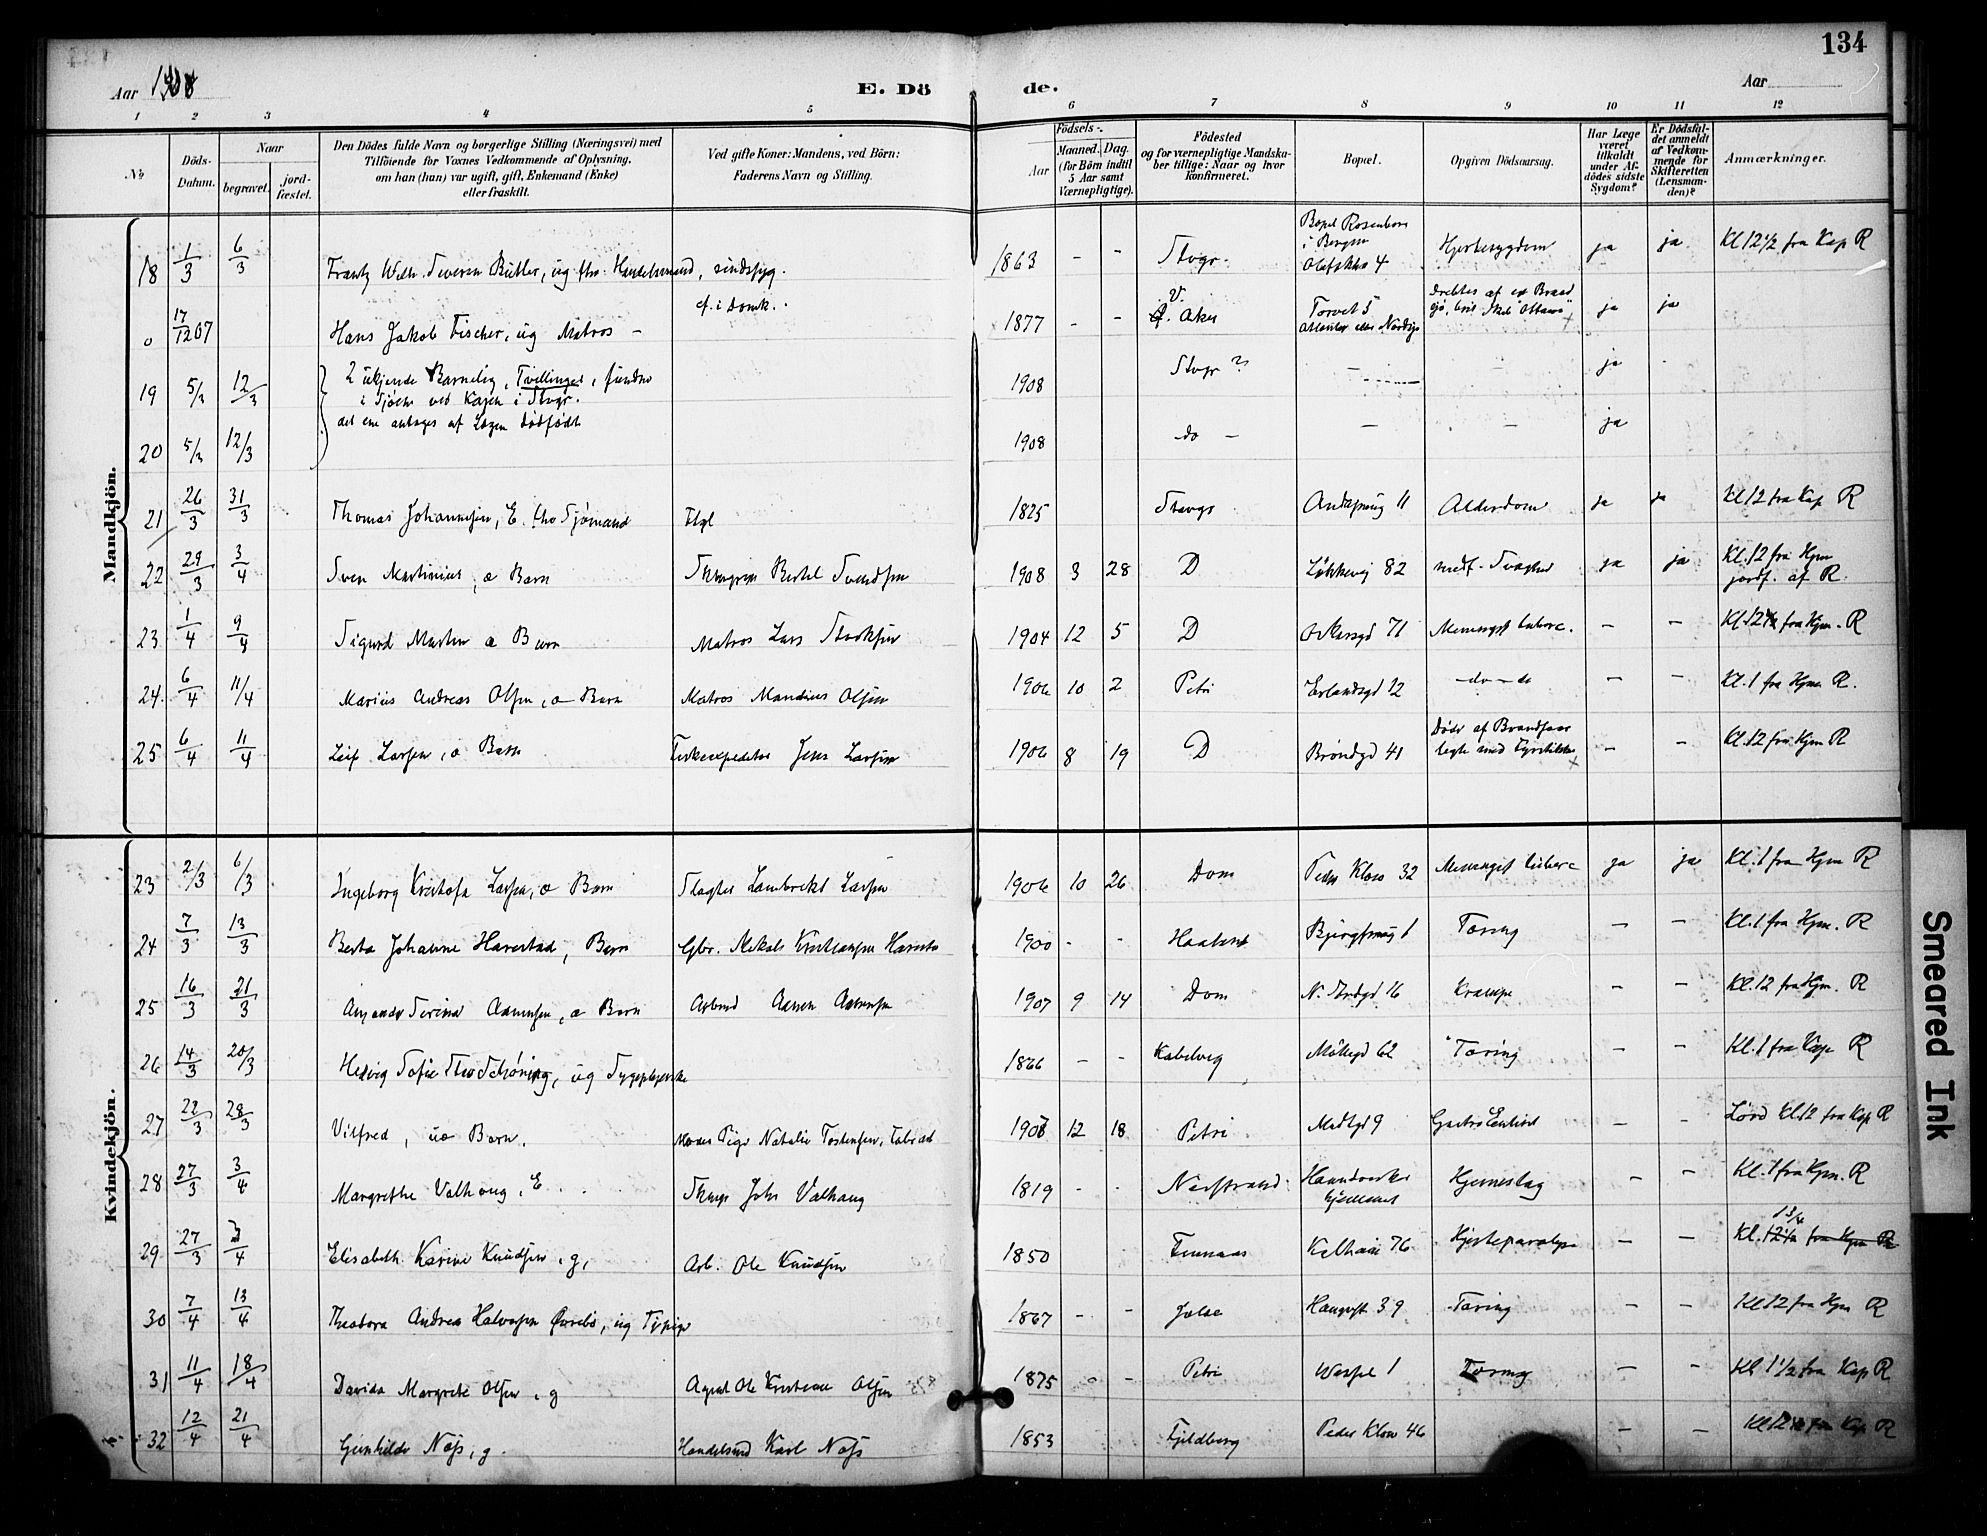 134
Aar 1908 E. Dö de. Aar
1 2 3 4 5 6 7 8 9 10 11 12
No
Döds-Datum.
Naar
begravet.
jordfæstet.
Den Dödes fulde Navn og borgerlige Stilling (Næringsvei) med
Tilföiende for Voxnes Vedkommende af Oplysning,
om han (hun) var ugift, gift, Enkemand (Enke)
eller fraskilt.
Ved gifte Koner: Mandens, ved Börn:
Faderens Navn og Stilling.
Födsels-
Aar
Maaned. Dag.
(for Börn indtil
5 Aar samt
Værnepligtige).
Födested
og for værnepligtige Mandska-
ber tillige: Naar og hvor
konfirmeret.
Bopæl.
Opgiven Dödsaarsag.
Har Læge
været
tilkaldt
under Af-
dödes sidste
Sygdom?
Er Dödsfal-
det anmeldt
af Vedkom-
mende for
Skifteretten
(Lensman-
den)?
Anmærkninger.
Mandkjön.
18 1/3 6/3 Frantz Wilh. Severin Butler, ug fhv. Handelsmand, sindssyg. 1863 - - Stvgr. Bopel Rosenborg
i Bergen
Olafskl 4 Hjertesygdom ja ja Kl 12 1/2 fra Kap R
f. i Domk.
0 17/12 07 Hans Jakob Fischer, ug Matros - 1877 - - V. Aker Torvet 5 ja ja
19 5/3 12/3 2 ukjendte Barnelig, Tvillinger, fundne
i Sjøen ved Kajen i Stvgr. 1908 Stvgr? - ja
det ene antages af Lægen dødfødt
20 5/3 12/3 1908 do - - - ja
21 26/3 31/3 Thomas Johannesen, E. fhv Sjømand Flgl 1825 Stavgr 11 Alderdom ja ja Kl 12 fra Kap R
22 29/3 3/4 Sven Martinius, æ Barn Bertel Svendsen 1908 3 28 D Løkkevej 82 medf. Svaghed ja ja Kl. 12 fra Hjm
jordf. af R.
23 1/4 9/4 Sigurd Martin æ Barn Matros Lars 1904 12 5 D Oskarsgd 71 Meningit tuberc. - - Kl. 12 1/2 fra Hjm. R
24. 6/4 11/4 Marius Andreas Olsen, æ Barn Matros Mandius Olsen 1906 10 2 Petri Erlandsgd 12 - do - do - - Kl. 1 fra Hjm. R.
25 6/4 11/4 Leif Larsen, æ Barn Jens Larsen 1906 8 19 D Brøndgd 41 Døde af Brandsaar
legte med Fyrstikker - - Kl. 12 fra Hjm R
Kvindekjön.
23 2/3 6/3 Ingeborg Kristofa Larsen, æ Barn Slagter Lambrekt Larsen 1906 10 26 Dom Peder Klow 32 Meningit tuberc ja ja Kl. 1 fra Hjm R
24 7/3 13/3 Berta Johanne Harestad, Barn Gbr. Mikal Kristiansen 1900 - - Haaland Bjergsmug 1 Tæring - - Kl. 1 fra Hjm. R
25 16/3 21/3 Serina Aanensen, æ Barn Arbmd Aanen Aanensen 1907 9 14 Dom 16 Krampe - - Kl. 12 fra Hjm. R
26 14/3 20/3 Hedvig Sofie Schöning, ug Sygeplejerske 1866 - - Kabelvåg Møllegd 62 Tæring - - Kl. 1 fra Kap R
27 22/3 28/3 Vilfred, uæ Barn. Moder Pige Natalie Tostensen, 1908 12 18 Petri 9 - - Lørd Kl 12 fra Kap R
28 27/3 3/4 Margrethe Valhoug, E Johs Valhaug 1819 - - Nerstrand Haandverker
hjemmet Hjerneslag - - Kl. 1 fra Hjm. R
29 27/3 3/4 Elisabeth Karine Knudsen, g, Arb. Ole Knudsen 1850 76 - - 1 3/4
Kl. 12 1/2 fra Hjm R
30 7/4 13/4 Theodora Andrea Halvorsen Øvrebø, ug 1867 - - Jelse Haugvst 39 Tæring - - Kl 12 fra Hjm R
31 11/4 18/4 Davida Margrete Olsen, g Agent Ole Kristian Olsen 1875 - - Petri 1 Tæring - - Kl 1 1/2 fra Kap R
32 12/4 21/4 Gunhilde Næss, g. Handelsmd Karl Næss 1853 Fjeldberg Peder Klow 46 - - Kl 12 1/2 fra Kap R
Smeared Ink